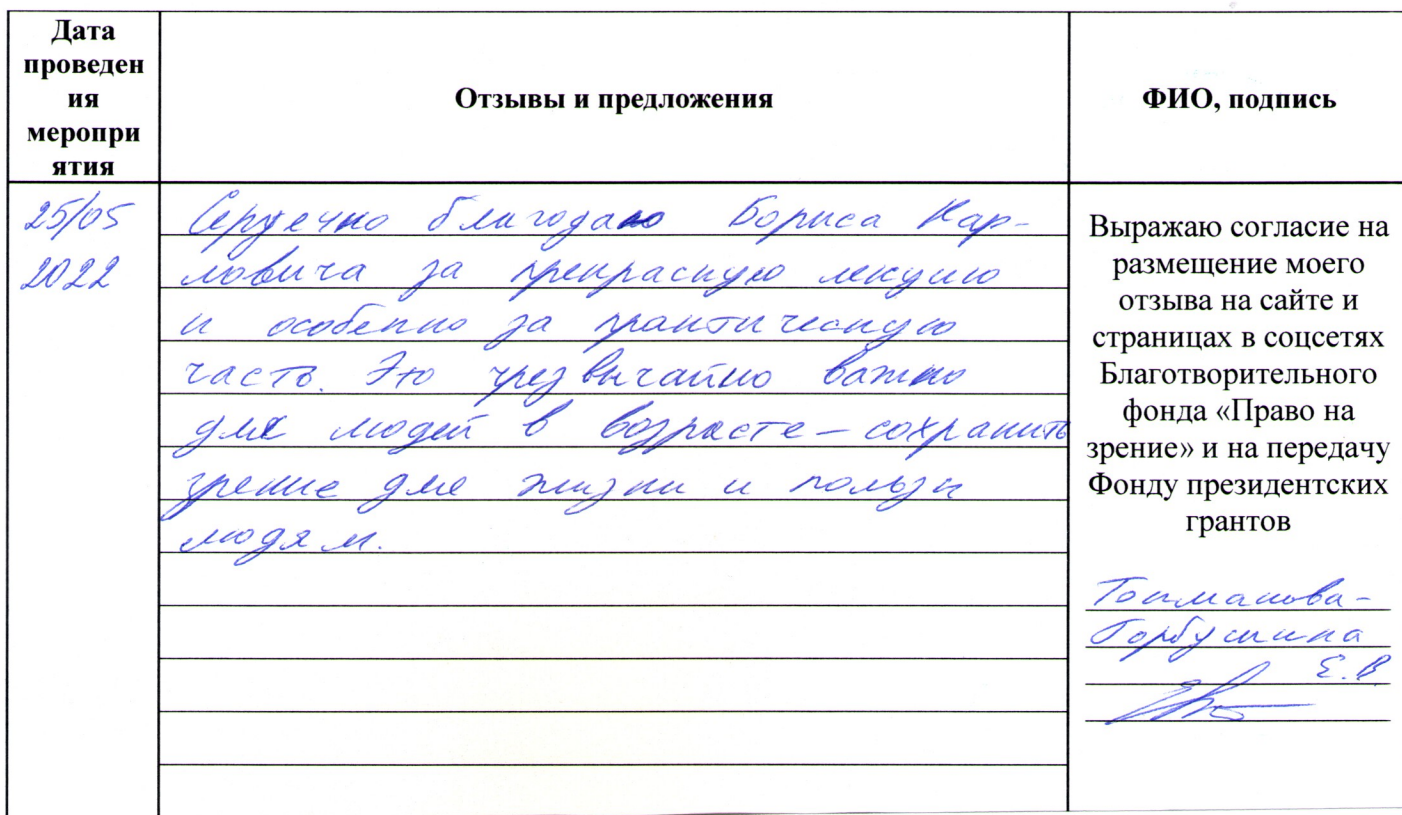 Дата
проведен
ия
меропри
ятия
Отзывы и предложения
ФИО, подпись
25/05
2022
Сердечно благодаю Бориса Кар-
ловича за прекрасную лекцию
и особенно за практическую
часть. Это чрезвычайно важно
для людей в возрасте – сохранить
зрение для жизни и пользы
людям.
Выражаю согласие на
размещение моего
отзыва на сайте и
страницах в соцсетях
Благотворительного
фонда «Право на
зрение» и на передачу
Фонду президентских
грантов
Горбушина
Е.В